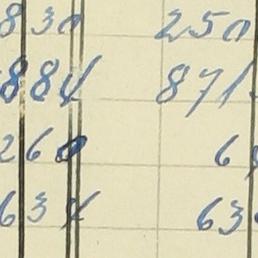 830 250
884 871
260 6
634 63